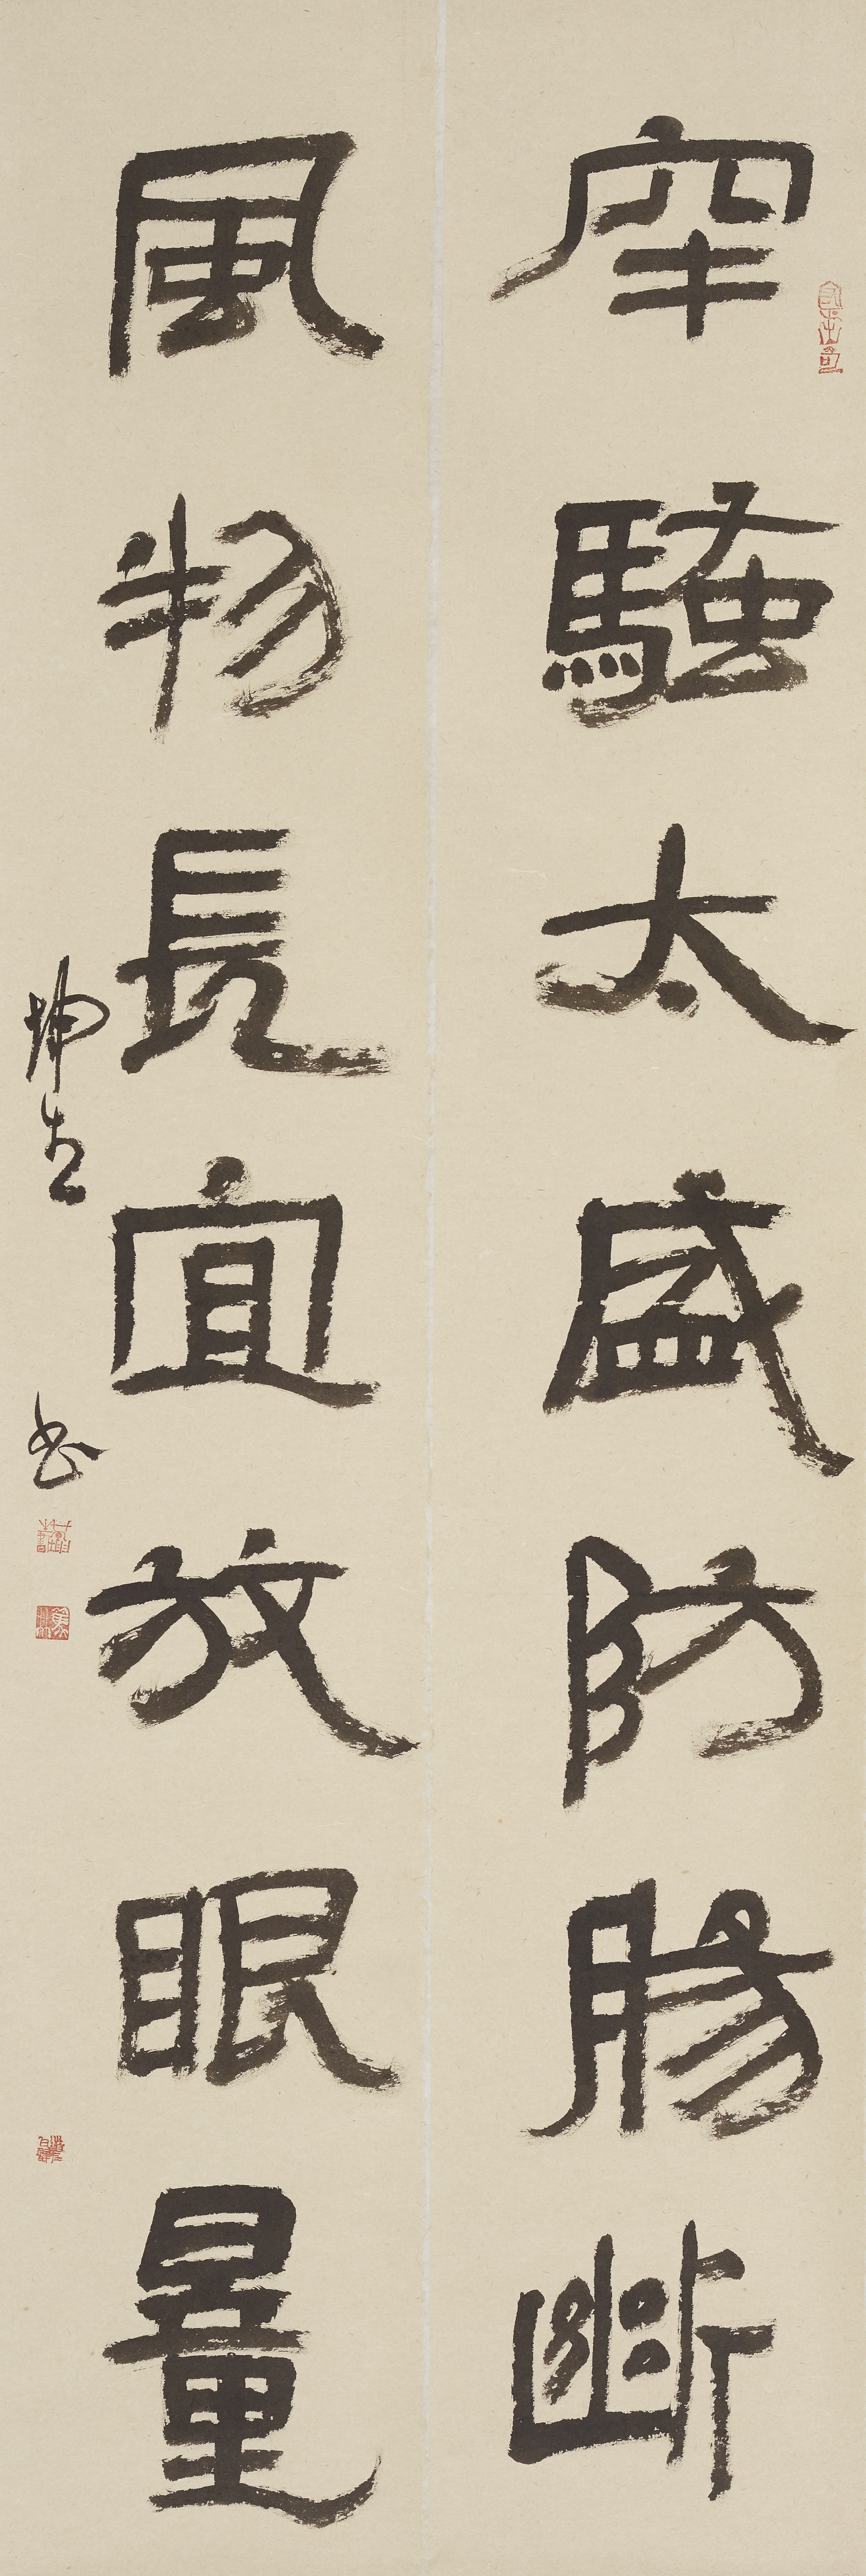 牢騷太盛防腸斷
風物長宜放眼量
坤 书